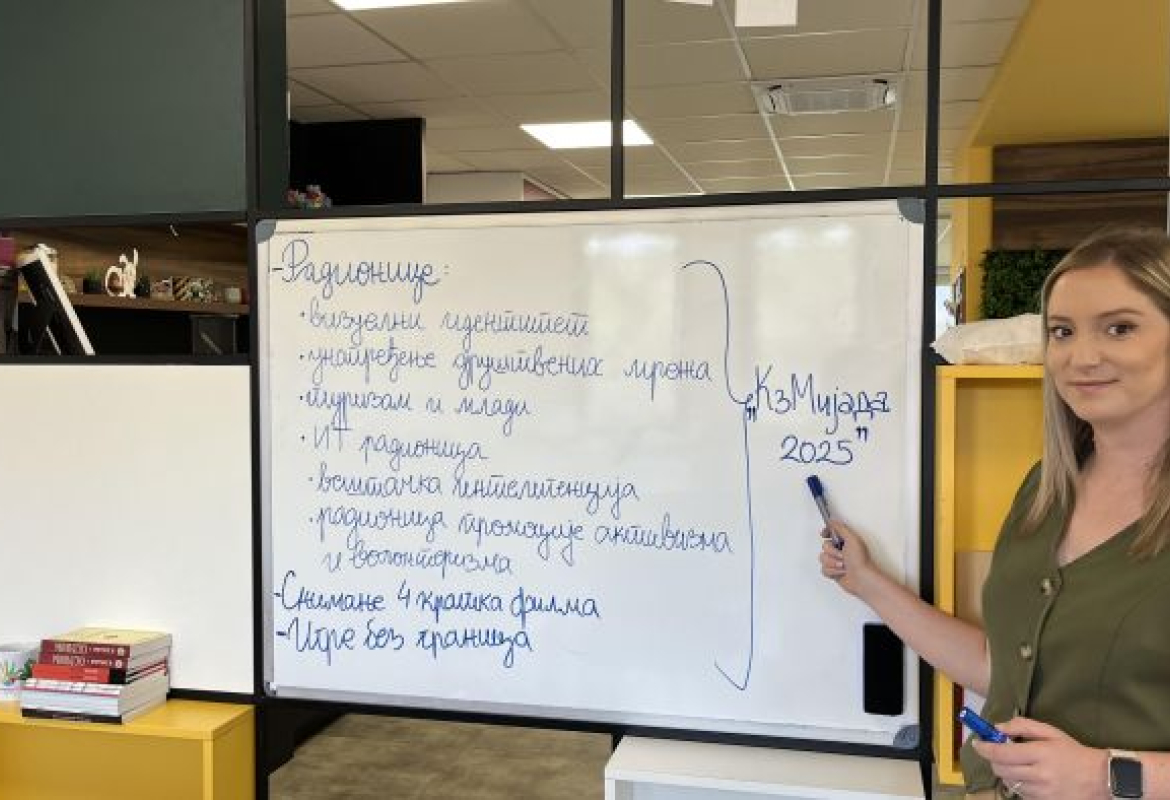 -Радионице:
•визуелни идентитет
•унапређење друштвених мрежа
•туризам и млади
•ИТ радионица
•вештачка интелигенција
•радионица промоције активизма
и волонтеризма
-Снимање 4 кратка филма
-Игре без граница
„КзМијада
2025”